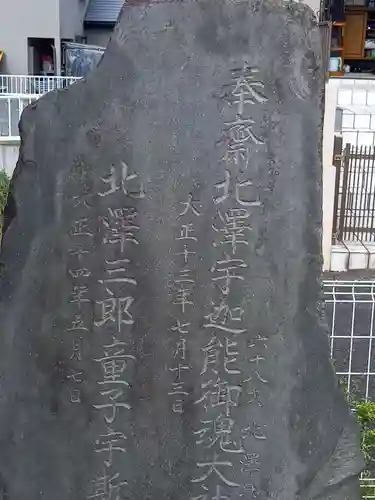 奉齋北澤宇迦能御魂大神
六十八才北澤
大正十三年七月十三日
北澤三郎童子宇斯
大正十四年五月七日